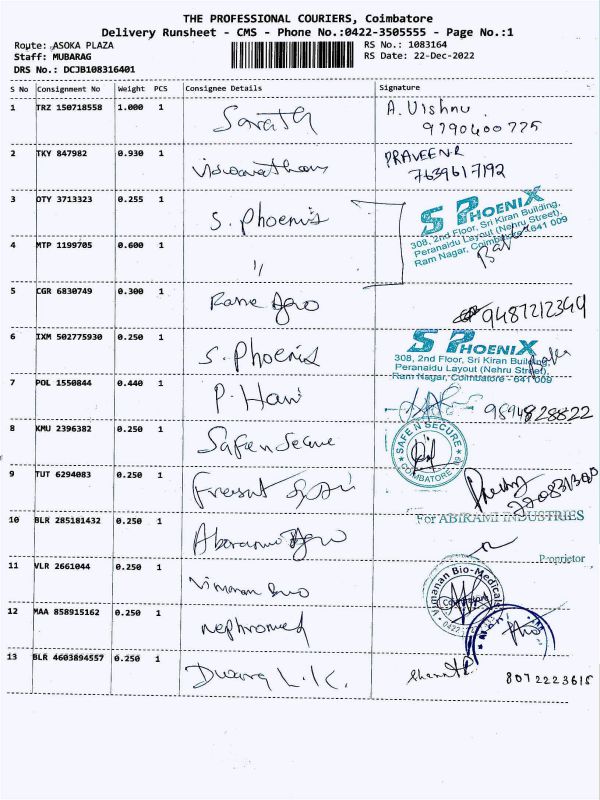 THE PROFESSIONAL COURIERS, Coimbatore
Delivery Runsheet - CMS - Phone No.:0422-3505555 - Page No.:1
Route: ASOKA PLAZA
Staff: MUBARAG
DRS No.: DCJB108316401
RS No.: 1083164
RS Date: 22-Dec-2022
S No Consignment No Weight PCS Consignee Details Signature
1 TRZ 150718558 1.000 1 Sarath A. Vishnu
9790400775
2 TKY 847982 0.930 1 PRAVEEN.R
7639617192
3 OTY 3713323 0.255 1 S. Phoenix S PHOENIX
308, 2nd Floor, Sri Kiran Building,
Peranaidu Layout (Nehru Street),
Ram Nagar, Coimbatore - 641 009
4 MTP 1199705 0.600 1 "
5 CGR 6830749 0.300 1 9487212349
6 IXM 502775930 0.250 1 S. Phoenix S PHOENIX
308, 2nd Floor, Sri Kiran Building,
Peranaidu Layout (Nehru Street),
Ram Nagar, Coimbatore - 641 009
7 POL 1550844 0.440 1 P. Hari 9894828822
8 KMU 2396382 0.250 1 Safe n Secure SAFE N SECURE
COIMBATORE
9 TUT 6294083 0.250 1
For ABIRAMI INDUSTRIES
10 BLR 285181432 0.250 1
Proprietor
11 VLR 2661044 0.250 1 Vimanan Bio Vimanan Bio-Medicals
Coimbatore
0422
12 MAA 858915162 0.250 1 nephromed
13 BLR 4603894557 0.250 1 L.K. 8072223615